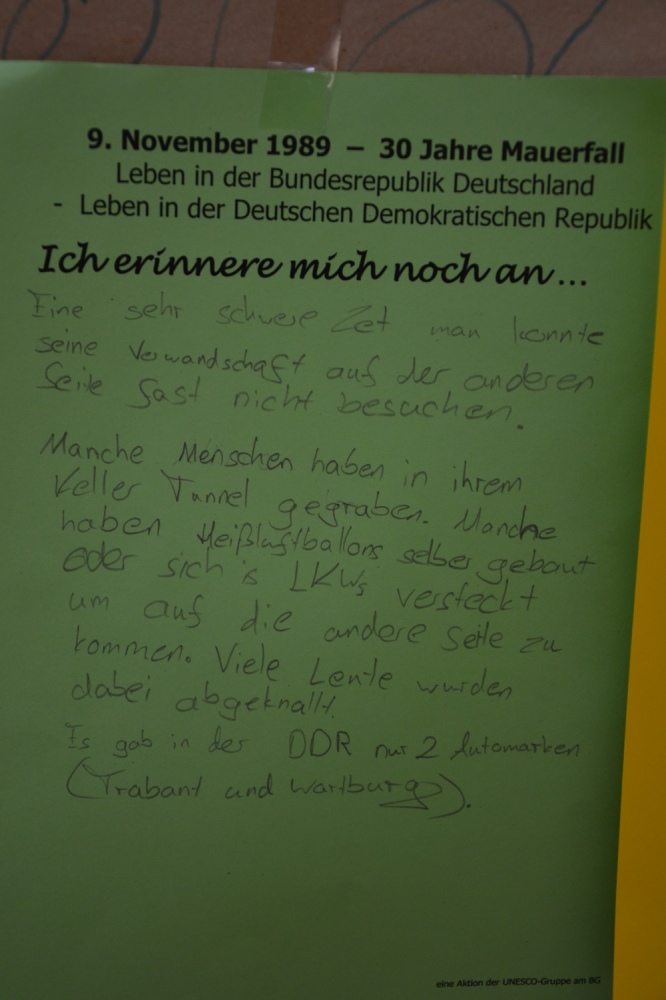 9. November 1989 – 30 Jahre Mauerfall
Leben in der Bundesrepublik Deutschland
- Leben in der Deutschen Demokratischen Republik
Ich erinnere mich noch an...
Eine sehr schwere Zet man konnte
seine Verwandschaft auf der anderen
Seite fast nicht besuchen.
Manche Menschen haben in ihrem
Keller Tunnel gegraben. Manche
haben Heißluftballons selber gebaut
oder sich is LKWs versteckt
um auf die andere Seite zu
kommen. Viele Leute wurden
dabei abgeknallt.
Es gab in der DDR nur 2 Automarken
(Trabant und Wartburg).
eine Aktion der UNESCO-Gruppe am BG